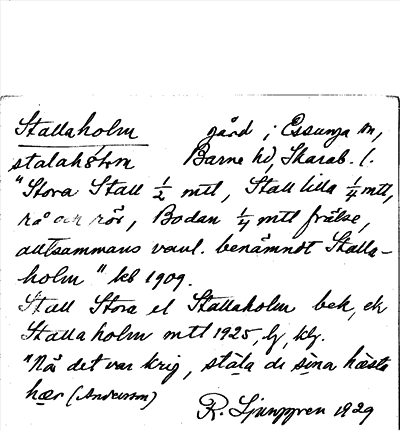 Stallaholm gård i Essunga sn,
stalahòlm Barne hd, Skarab. l.
"Stora Stall ½ mtl, Stall lilla ¼ mtl,
rå och rör, Bodan ¼ mtl frälse,
alltsammans vanl. benämndt Stalla-
holm" kb 1909.
Stall Stora el Stallaholm bek, ek
Stallaholm mtl 1925, lj, klg.
"Nå det var krig, stäla di sina hästa
hær (Andersson)
R. Ljunggren 1929